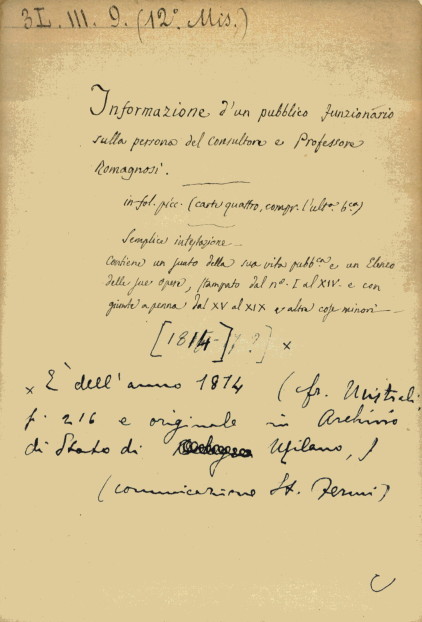 3L. III. 9. (12º. Mis.)
Informazione d'un pubblico funzionario
sulla persona del Consultore e Professore
Romagnosi.
in-fol. picc. (carte quattro, compr. l'ultª. bᶜª)
Semplice intestazione
Contiene un sunto della sua vita pubbᶜª e un Elenco
delle sue opere, stampato dal nº. I al XIV. e con
giunte a penna dal XV al XIX e altre cose minori
[1814] ?] x
x È dell'anno 1814 (cfr. Mistrali
p. 216 e originale in Archivio
di Stato di Milano,
(comunicazione St. Fermi)